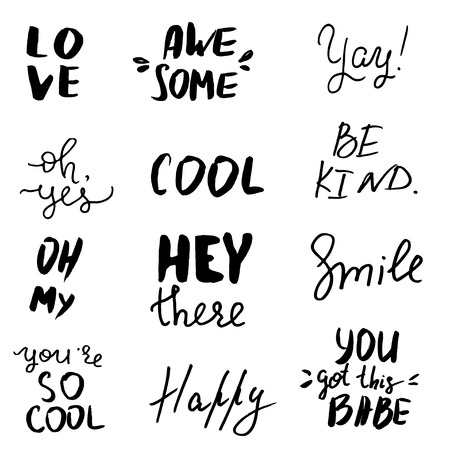 LO
VE
AWE
SOME
Yay!
oh,
yes
COOL
BE
KIND.
OH
My
HEY
there
Smile
you're
SO
COOL
Happy
YOU
got this
BABE